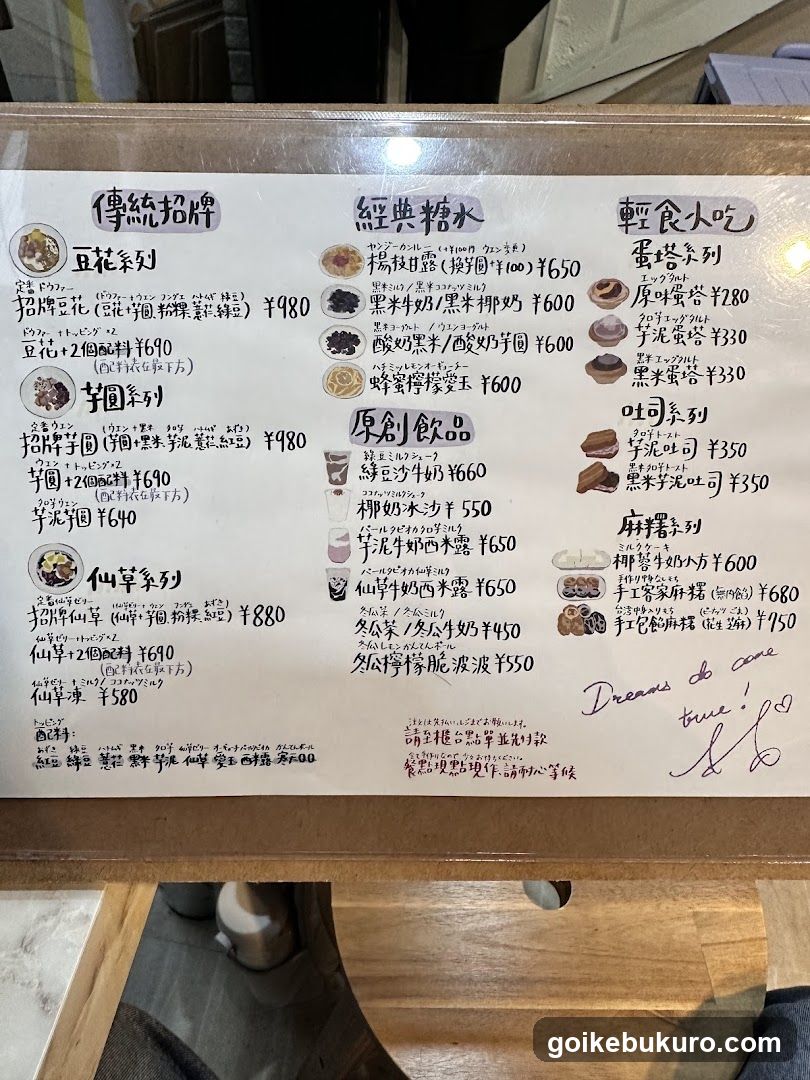 傳統招牌
豆花系列
定番ドウファー
招牌豆花 (豆花+芋圓、粉粿、薏芢、綠豆) ¥980
ドウファー+トッピング×2
豆花+2個配料 ¥690
(配料表在最下方)
芋圓系列
定番ウエン
招牌芋圓 (芋圓+黑米、芋泥、薏芢、紅豆) ¥980
ウエン+トッピング×2
芋圓+2個配料 ¥690
(配料表在最下方)
タロ芋ウエン
芋泥芋圓 ¥640
仙草系列
定番仙草ゼリー
招牌仙草 (仙草+芋圓、粉粿、紅豆) ¥880
仙草ゼリー+トッピング×2
仙草+2個配料 ¥690
(配料表在最下方)
仙草ゼリー+ミルク/ココナッツミルク
仙草凍 ¥580
トッピング
配料:
紅豆 綠豆 薏芢 黑米 芋泥 仙草 愛玉 西米露 寒天
經典糖水
ヤンジーカンルー (+¥100円 ウエン変更)
楊枝甘露 (換芋圓+¥100) ¥650
黒米ミルク/黒米ココナッツミルク
黑米牛奶/黑米椰奶 ¥600
黒米ヨーグルト/ウエンヨーグルト
酸奶黑米/酸奶芋圓 ¥600
ハチミツレモンオーギョーチー
蜂蜜檸檬愛玉 ¥600
原創飲品
綠豆ミルクシェーク
綠豆沙牛奶 ¥660
ココナッツミルクシェーク
椰奶冰沙 ¥550
パールタピオカタロ芋ミルク
芋泥牛奶西米露 ¥650
パールタピオカ仙草ミルク
仙草牛奶西米露 ¥650
冬瓜茶/冬瓜ミルク
冬瓜茶/冬瓜牛奶 ¥450
冬瓜レモンかんてんボール
冬瓜檸檬脆波波 ¥550
注文は先払いレジまでお願いします。
請至櫃台點單並先付款
餐點現點現作、請耐心等候
輕食小吃
蛋塔系列
エッグタルト
原味蛋塔 ¥280
タロ芋エッグタルト
芋泥蛋塔 ¥330
黒米エッグタルト
黑米蛋塔 ¥330
吐司系列
タロ芋トースト
芋泥吐司 ¥350
黒米タロ芋トースト
黑米芋泥吐司 ¥350
麻糬系列
ミルクケーキ
椰蓉牛奶小方 ¥600
手工客家麻糬 (無內餡) ¥680
台湾中身入りもち (ピーナッツ ごま)
手工包餡麻糬 (花生 芝麻) ¥750
Dreams do come
true!
goikebukuro.com